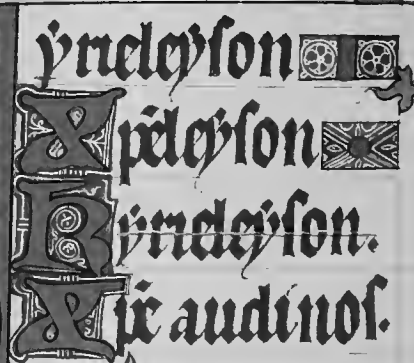 ẏrieleẏson
Xp̄eleẏson
Kẏrieleẏson.
Xp̄e audinos.